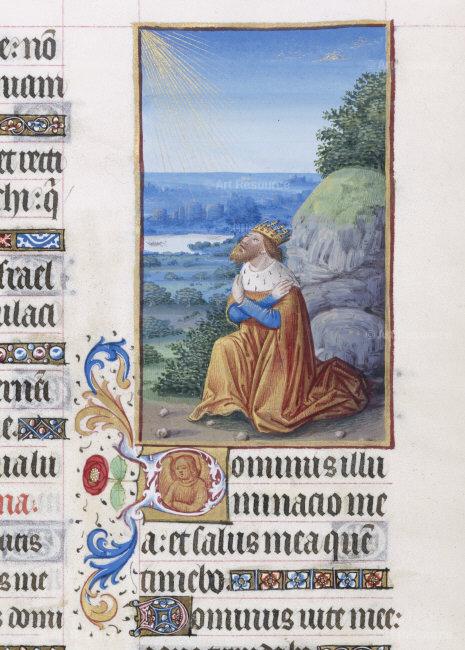 e: nō
uam
et recti
chi: q̄
srael
ulaci
e
ualu
na.
s me
s domi
Art Resource
Dominus illu
minacio me
a: et salus mea quē
timebo.
Dominus uite mee: